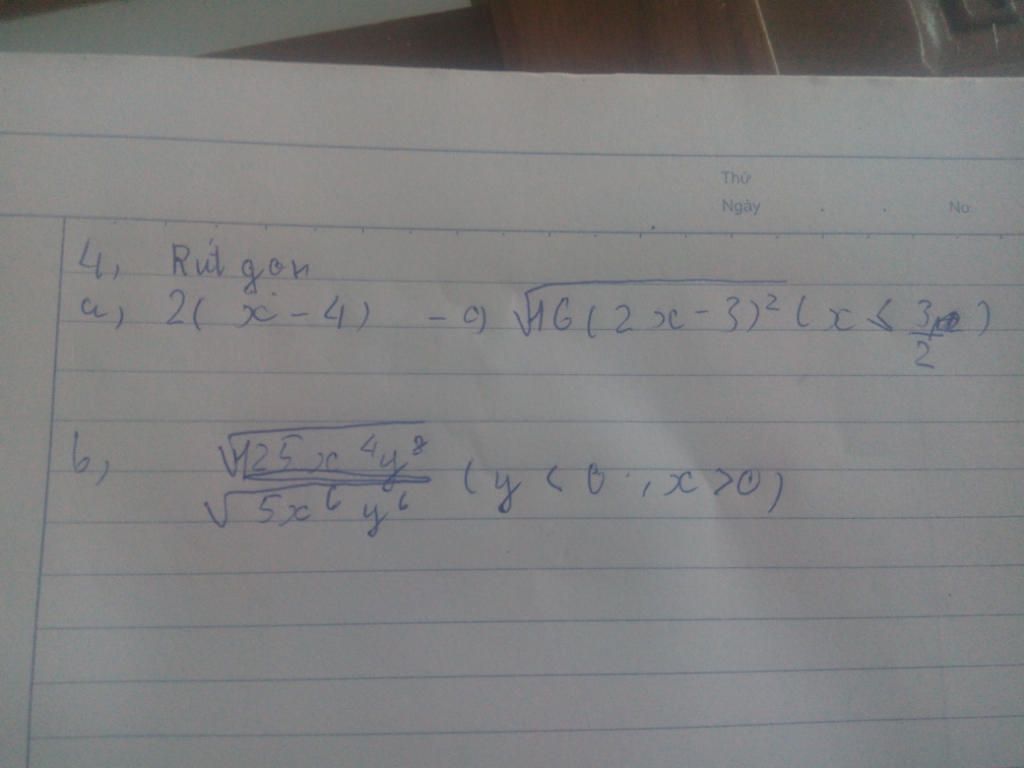 Thứ
Ngày No.
4, Rút gọn
a, 2( x - 4) - √16(2x-3)² (x ≤ 3/2)
b, √125x⁴y⁸ / √5x⁶y⁶ (y < 0, x > 0)